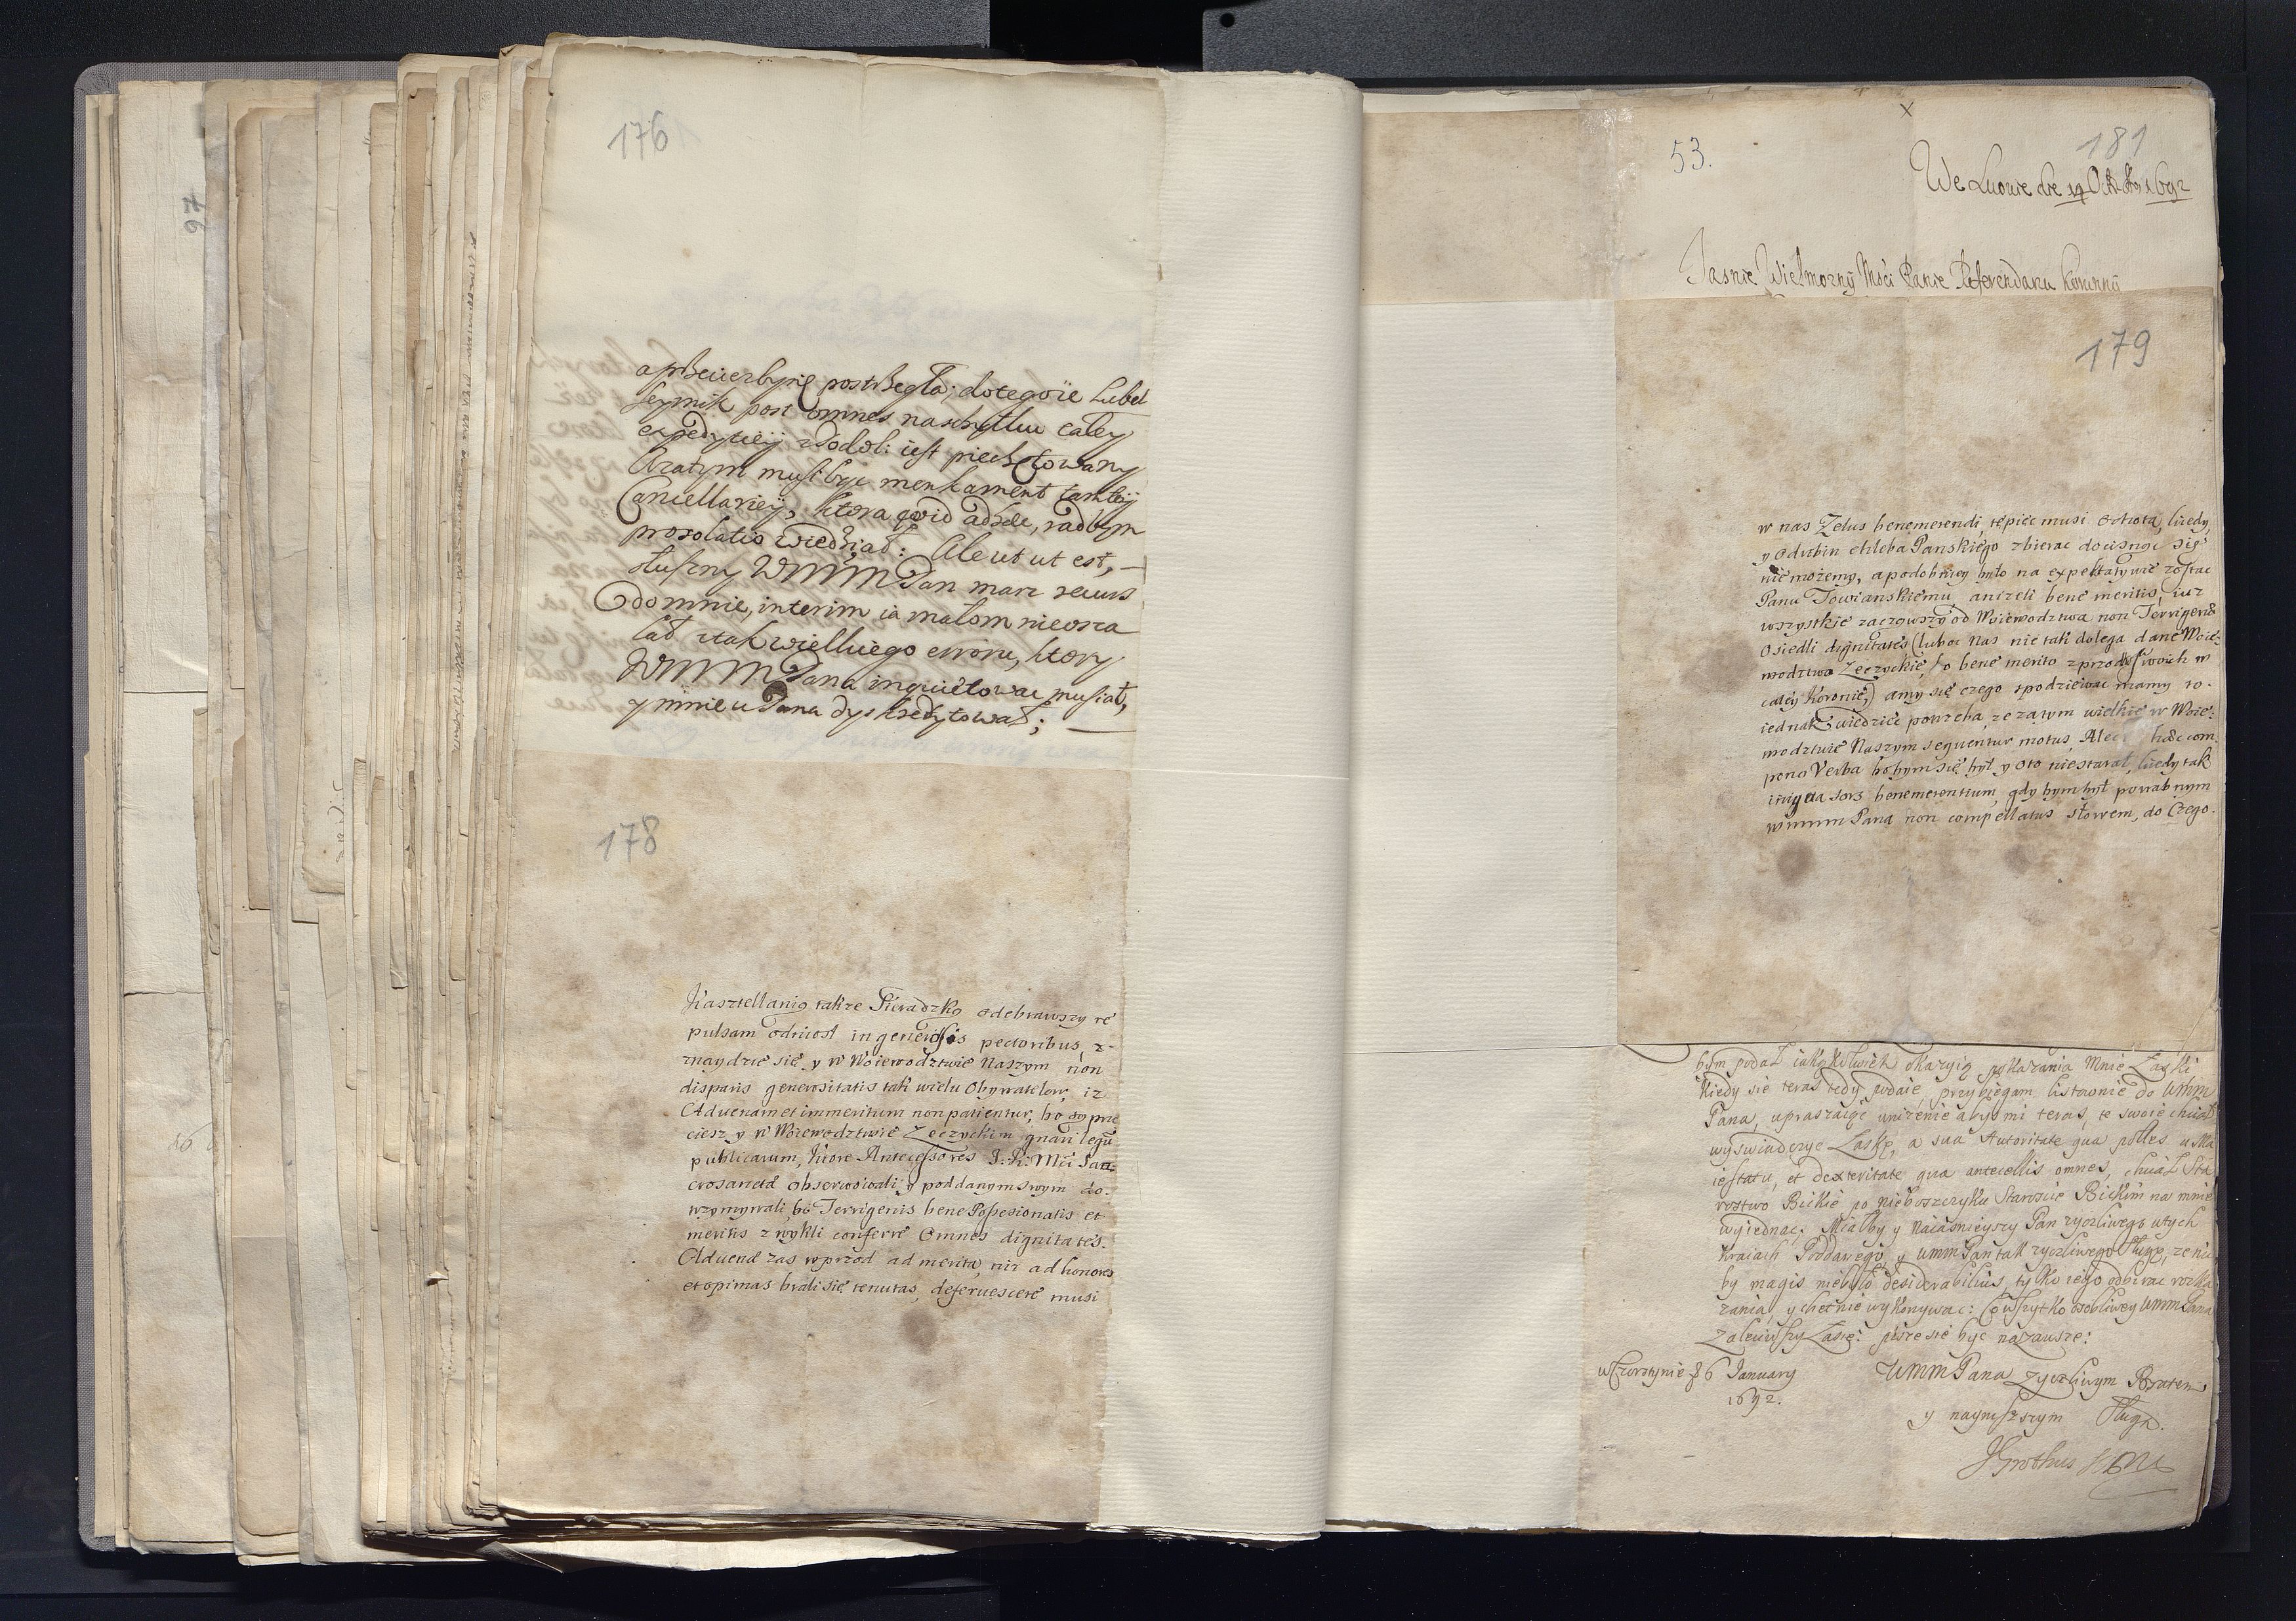 97
176
a przeciez bym postrzegła; dotegoże Lubel
Seymik post omnes naschyłku całey
expedycieÿ zPodol: iest piechotowany
Azatym musi byc menkament tamteÿ
Cancellarieÿ, ktora quid adhæc, radbym
prosolatio wiedział: Ale ut ut est,
słuszny WMMM Pan masz recurs
do mnie, interim ia małom nieosza
lał ztak wielkiego erroru, ktory
WMMM Pana inquietowac musiał,
y mnie u Pana dyskredytował;
178
Kasztellanią także Sieradzką odebrawszy re
pulsam odniosł in generosis pectoribus, z-
znaydzie się y w Woiewodztwie Naszym non
disparis generositatis tak wielu Obywatelow, iz
Advenam et immeritum non patientur, bo są prze
ciesz y w Woiewodztwie Łęczyckim gnari legū
publicarum, ktore Antecessores J: K: Mći Sac-
crosancte obserwowali, y poddanym swym do-
trzymywali, bo Terrigenis bene Possesionatis et
meritis zwykli conferre Omnes dignitates.
Advenæ zas wprzod ad merita, niz ad honores
et opimas brali się tenutas, defervescere musi
53.
181
We Lwowie die 17 Octobr 1692
Jasnie Wielmozny Mości Panie Referendarzu Koronny
179
w nas Zelus benemerendi, tępiec musi ochota, kiedy
y odrobin chleba Panskiego zbierac docisnąc się
nie możemy, a podobniey było na expektatywie zostac
Panu Towianskiemu anizeli bene meritis, iuz
wszystkie zacząwszy od Woiewodztwa non Terrigenæ
Osiedli dignitates (lubo nas nie tak dolega dane Woie-
wodztwo Łęczyckie, bo bene merito z przodkow swoich w
całey Koronie,) a my się czego spodziewac mamy to-
iednak wiedziec potrzeba, ze zatym wielkie w Woie-
wodztwie Naszym sequentur motus, Ale hæc com-
pono Verba bobym się był y oto niestarał, kiedy tak
iniqua sors benemerentium, gdy bym był powabnym
wmmm Pana non compellatus słowem, do Czego-
bym podał iakąkolwiek okazyią pokazania Mnie Łaski
Kiedy się teraz tedy podaie, przybiegam listownie do wmm
Pana, upraszaiąc unizenie abys mi teraz, te swoie chciał
wyswiadczyc Łaskę, a sua Autoritate qua polles u Ma
iestatu, et dexteritate qua antecellis omnes, chciał Sta
rostwo Bickie po nieboszczyku Staroscie Bickim na mnie
wyiednac. Miałby y Naiasnieyszy Pan zyczliwego wtych
Kraiach Poddanego, y wmm Pan tak zyczliwego Sługę, ze nic
by magis niebyło desiderabilius, tylko iego odbierac rozka
zania, y chętnie wykonywac: Co wszytko osobliwey wmm Pana
zaleciwszy Łasce: piszę się byc nazawsze:
wCzorsztynie d 6 January
1692.
WMM Pana Zyczliwym Bratem
y nayniszszym Sługą.
JGrothus